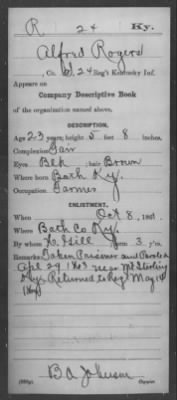 R 24 Ky.
Alfred Rogers
, Co. , 24 Reg't Kentucky Inf.
Appears on
Company Descriptive Book
of the organization named above.
DESCRIPTION.
Age 23 years; height 5 feet 8 inches.
Complexion Fair
Eyes Blk ; hair Brown
Where born Bath Ky.
Occupation Farmer
ENLISTMENT.
When Oct 8, 1861.
Where Bath Co Ky.
By whom Hill ; term 3 y'rs.
Remarks: Taken Prisoner and Paroled
Apl 29 1863 near Mt Sterling
Ky. Returned to Regt May 18
B A Johnson
Copyist.